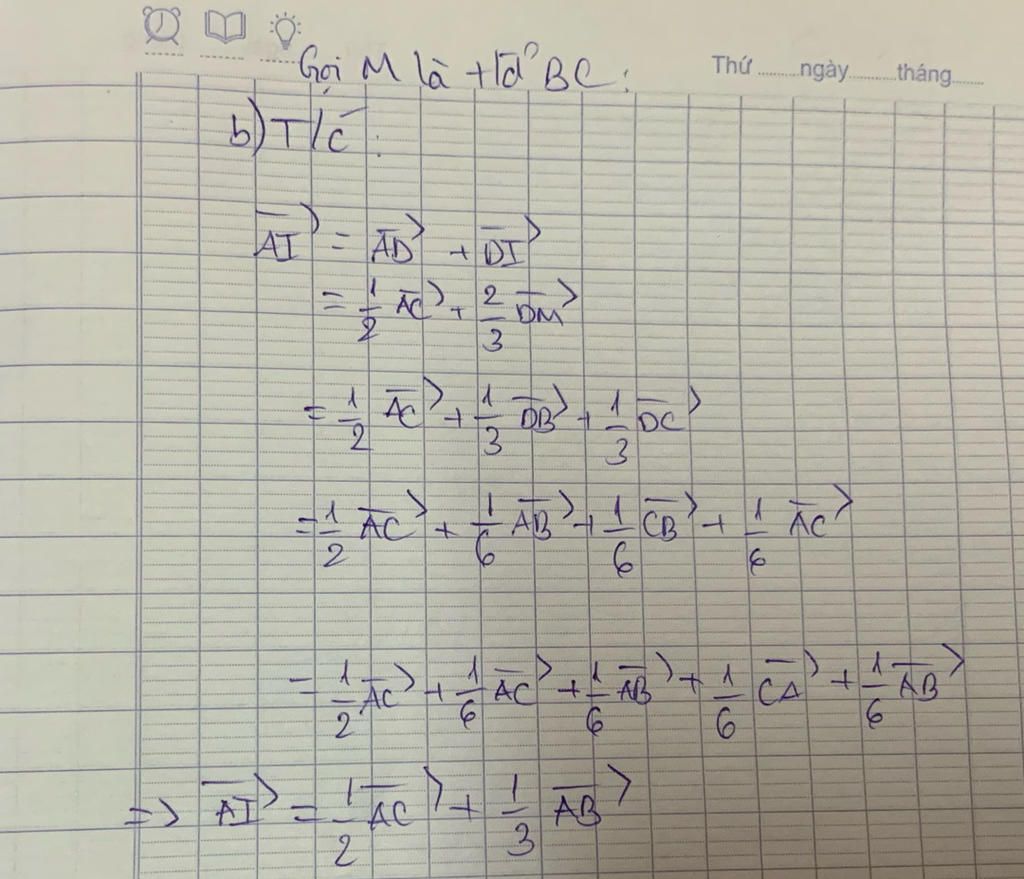 Thứ ........ ngày ........ tháng ........
Gọi M là tđ BC:
b) T/c:
\overrightarrow{AI} = \overrightarrow{AD} + \overrightarrow{DI}
= \frac{1}{2} \overrightarrow{AC} + \frac{2}{3} \overrightarrow{DM}
= \frac{1}{2} \overrightarrow{AC} + \frac{1}{3} \overrightarrow{DB} + \frac{1}{3} \overrightarrow{DC}
= \frac{1}{2} \overrightarrow{AC} + \frac{1}{6} \overrightarrow{AB} + \frac{1}{6} \overrightarrow{CB} + \frac{1}{6} \overrightarrow{AC}
= \frac{1}{2} \overrightarrow{AC} + \frac{1}{6} \overrightarrow{AC} + \frac{1}{6} \overrightarrow{AB} + \frac{1}{6} \overrightarrow{CA} + \frac{1}{6} \overrightarrow{AB}
=> \overrightarrow{AI} = \frac{1}{2} \overrightarrow{AC} + \frac{1}{3} \overrightarrow{AB}